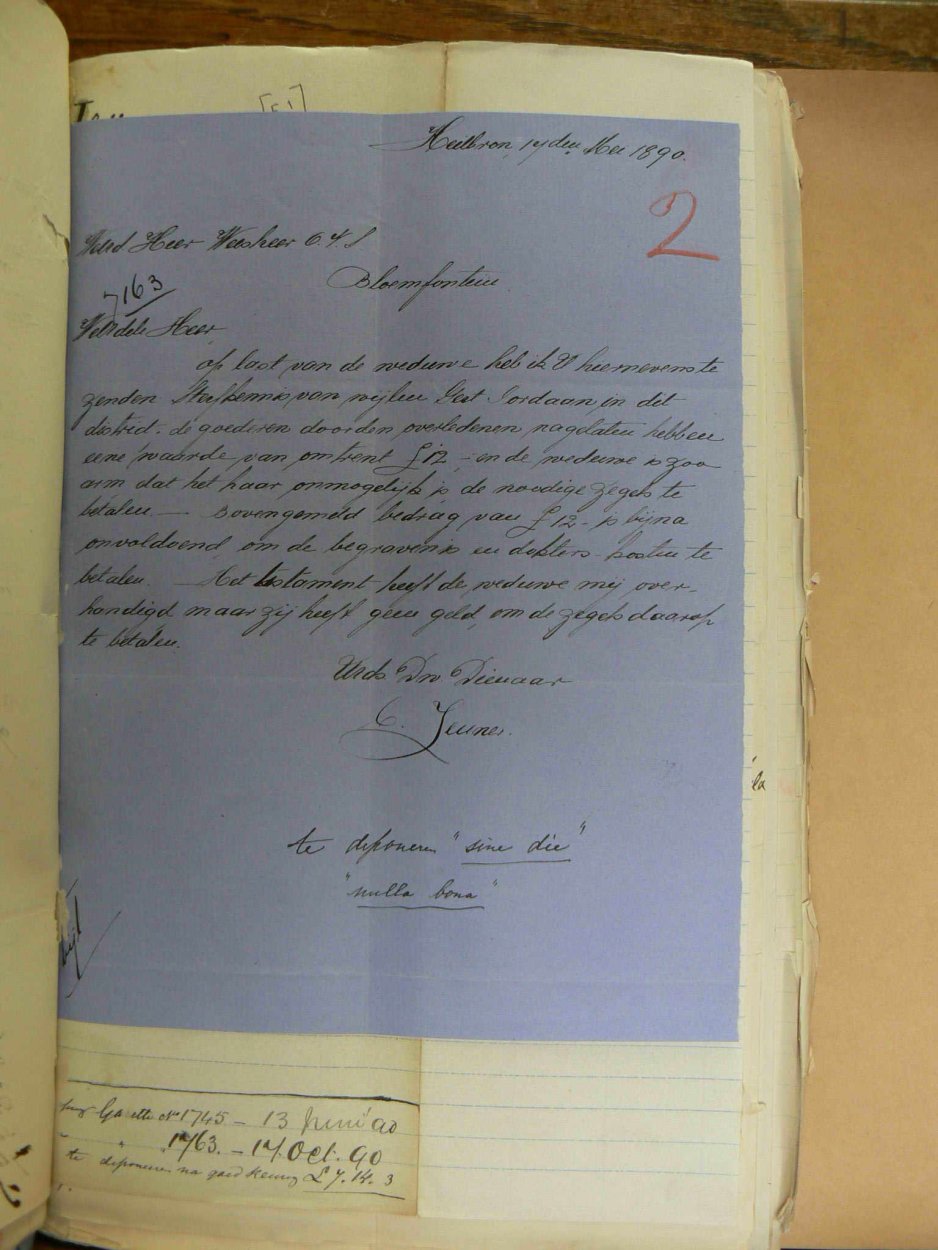 [51]
Heilbron, 17den Mei 1890.
2
Weled Heer Weesheer O.V.S
Bloemfontein
7163
WelEdele Heer
op last van de weduwe heb ik U hiernevens te
zenden Sterfkennis van wijlen Gert Jordaan in dit
district. de goederen door den overledenen nagelaten hebben
eene waarde van omtrent £12,- en de weduwe is zoo
arm dat het haar onmogelijk is de noodige zegels te
betalen — Bovengemeld bedrag van £12- is bijna
onvoldoend om de begravenis en dokters kosten te
betalen. — Het testament heeft de weduwe mij over-
handigd maar zij heeft geen geld, om de zegels daarop
te betalen.
UEds Dw. Dienaar
te deponeren "sine die"
"nulla bona"
Gazette No 1745 - 13 Juni '90
" 1763. - 17 Oct. 90
te deponeren na goedkeuring £7.14.3